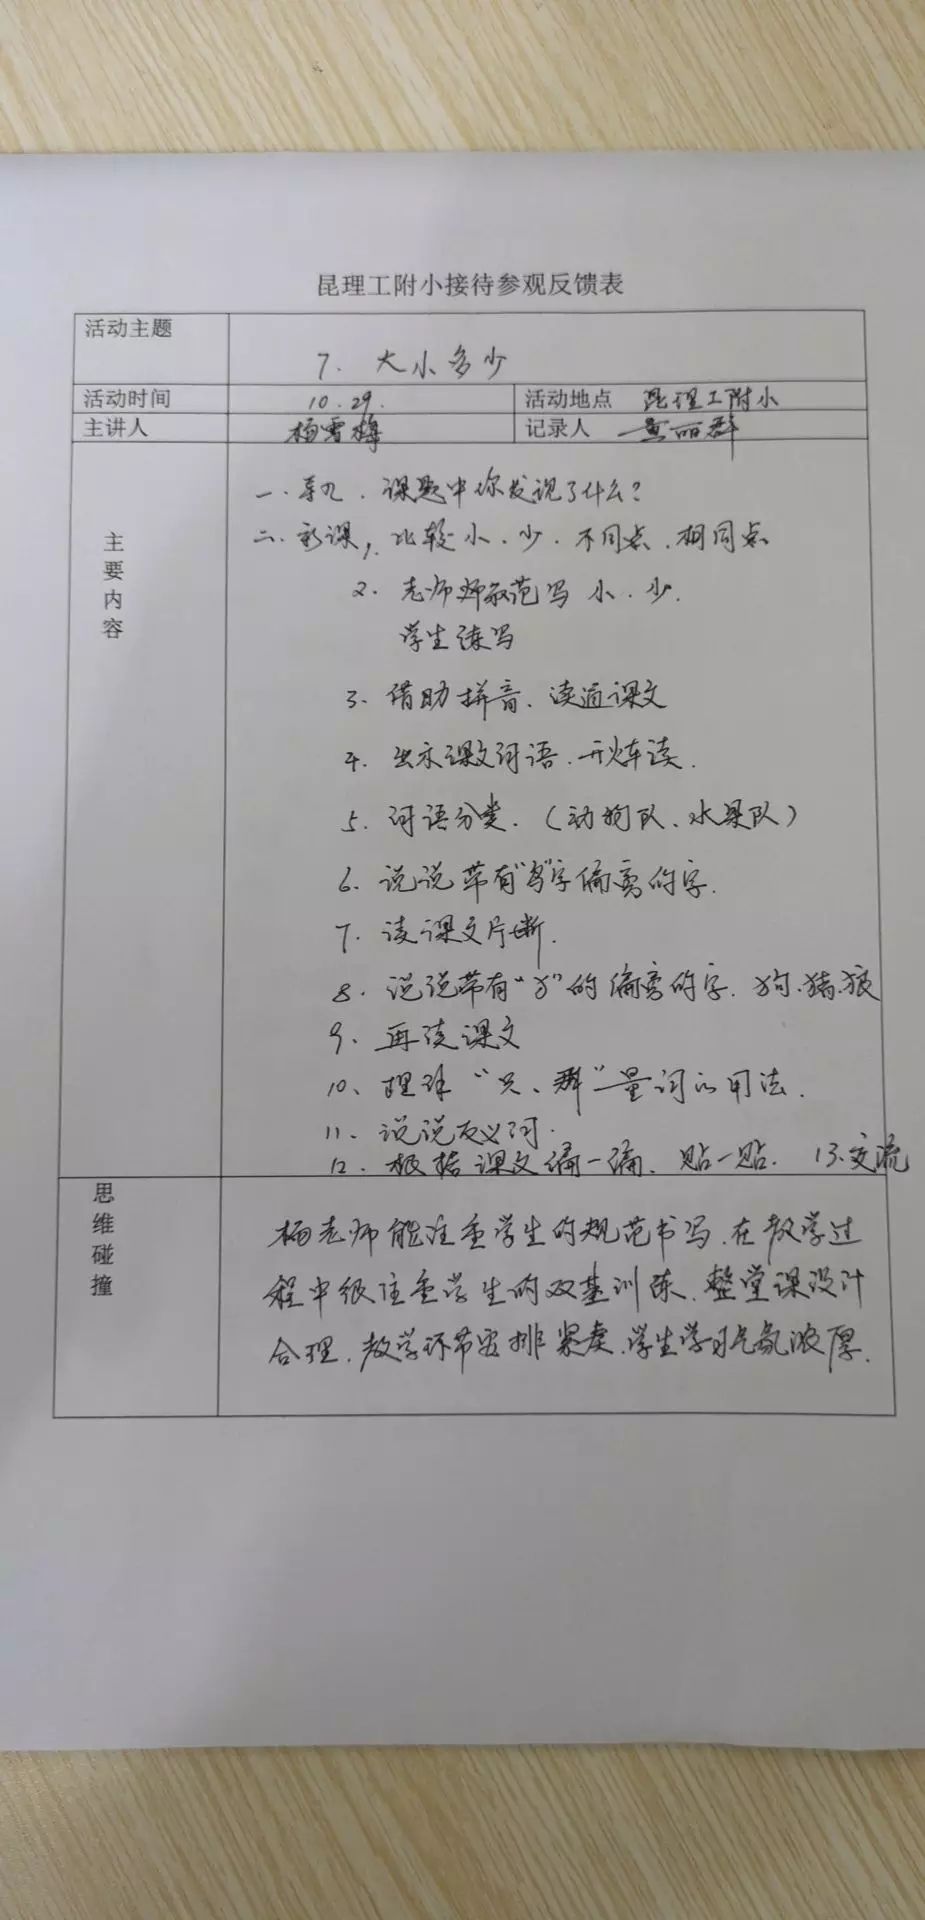 昆理工附小接待参观反馈表
活动主题
7. 大小多少
活动时间 10.29. 活动地点 昆理工附小
主讲人 杨雪梅 记录人 黄丽群
主要内容
一、导入、课题中你发现了什么?
二、新课, 1、比较小、少、不同点、相同点
2、老师师示范写小、少.
学生练写
3、借助拼音、读通课文
4、出示课文词语、开火车读.
5、词语分类、(动物队、水果队)
6、说说带有“鸟”字偏旁的字.
7、读课文片断.
8、说说带有“犭”的偏旁的字、狗、猪、狼
9、再读课文
10、理解“只、群”量词的用法.
11、说说反义词.
12、根据课文编一编、贴一贴. 13、交流
思维碰撞
杨老师能注重学生的规范书写、在教学过
程中很注重学生的双基训练、整堂课设计
合理、教学环节安排紧凑、学生学习气氛浓厚.